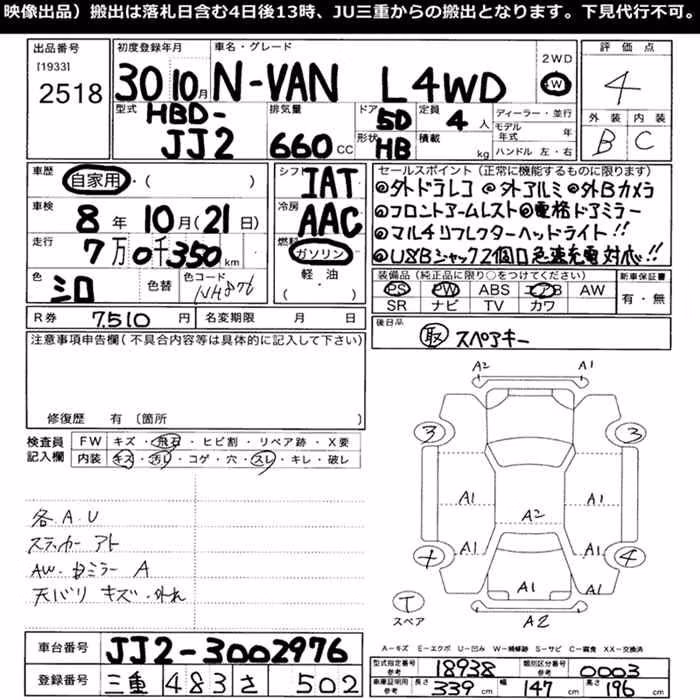 映像出品）搬出は落札日含む4日後13時、JU三重からの搬出となります。下見代行不可。
出品番号 初度登録年月 車名・グレード 2WD 評価点
[1933]
2518 30 10月 N-VAN L4WD 4W 4
型式 排気量 ドア 定員 ディーラー・並行 外装 内装
HBD-JJ2 660CC 5D 4人 モデル年式 年 B C
形状 HB 積載 kg ハンドル 左・右
車歴 自家用・( ) シフト IAT セールスポイント（正常に機能するものに限ります）
◎外ドラレコ ◎外アルミ ◎外Bカメラ
車検 8年10月(21日) 冷房 AAC ◎フロントアームレスト◎電格ドアミラー
走行 7万0千350km 燃料 ガソリン ◎マルチリフレクターヘッドライト!!
軽油 ◎USBジャック2個口急速充電対応!!
色 シロ 色替 色コード NH876 ( ) 装備品（純正品に限り○をつけてください） 新車保証書
PS PW ABS エアB AW 有・無
SR ナビ TV カワ
R券 7,510円 名変期限 月 日 後日品
取 スペアキー
注意事項申告欄（不具合内容等は具体的に記入して下さい）
修復歴 有〔箇所 〕
検査員 FW キズ・飛石・ヒビ割・リペア跡・X要
記入欄 内装 キズ・汚レ・コゲ・穴・スレ・キレ・破レ
各A.U
ステッカー アト
AW.白ミラー A
天バリ キズ・外れ
A2 A1
3 3
A1 A1
A2
A1 A1
4 4
A1 A1
T
スペア A2
A－キズ E－エクボ U－凹み W－補修跡 S－サビ C－腐食 XX－交換済
車台番号 JJ2-3002976
型式指定番号 参考 18938 類別区分番号 参考 0003
登録番号 三重 483 さ 502
車庫証明用 参考 長さ 339cm 幅 147cm 高さ 196cm